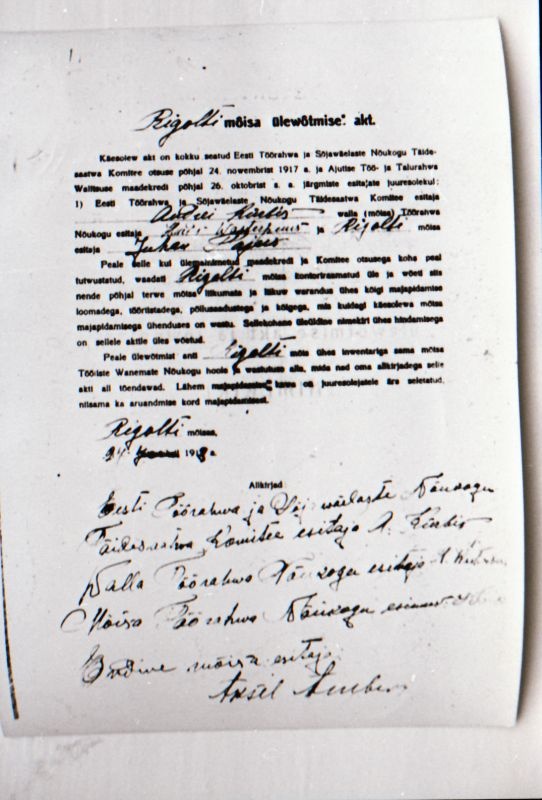 Rigolti mõisa ülewõtmise akt.
Käesolew akt on kokku seatud Eesti Töörahwa ja Sõjawäelaste Nõukogu Täide-
saatwa Komitee otsuse põhjal 24. nowembrist 1917 a. ja Ajutise Töö- ja Talurahwa
Walitsuse maadekredi põhjal 26. oktobrist a. a. järgmiste esitajate juuresolekul:
1) Eesti Töörahwa ja Sõjawäelaste Nõukogu Täidesaatwa Komitee esitaja
Andrei Kirbis walla (mõisa) Töörahwa
Nõukogu esitaja ja Rigolti mõisa
esitaja Juhan
Peale selle kui ülemalnimetud maadekredi ja Komitee otsusega koha peal
tutwustatud, waadati Rigolti mõisa kontoriraamatud üle ja wõeti siis
nende põhjal terwe mõisa liikumata ja liikuw warandus ühes kõigi majapidamise
loomadega, tööriistadega, põllusaadustega ja kõigega, mis kuidagi käesolewa mõisa
majapidamisega ühenduses on wastu. Sellekohane üleüldine nimekiri ühes hindamisega
on sellele aktile üles wõetud.
Peale ülewõtmist anti Rigolti mõis ühes inwentariga sama mõisa
Tööliste Wanemate Nõukogu hoole ja wastutuse alla, mida nad oma allkirjadega selle
akti all tõendawad. Lähem majapidamise kawa on juuresolejatele ära seletatud,
niisama ka aruandmise kord majapidamisest.
Rigolti mõisas,
24 1918 a.
Allkirjad:
Eesti Töörahwa ja Sõjawäelaste Nõukogu
Täidesaatwa Komitee esitaja A. Kirbis
Walla Töörahwa Nõukogu esitaja
Mõisa Töörahwa Nõukogu esimees
Endine mõisa esitaja
Aksel